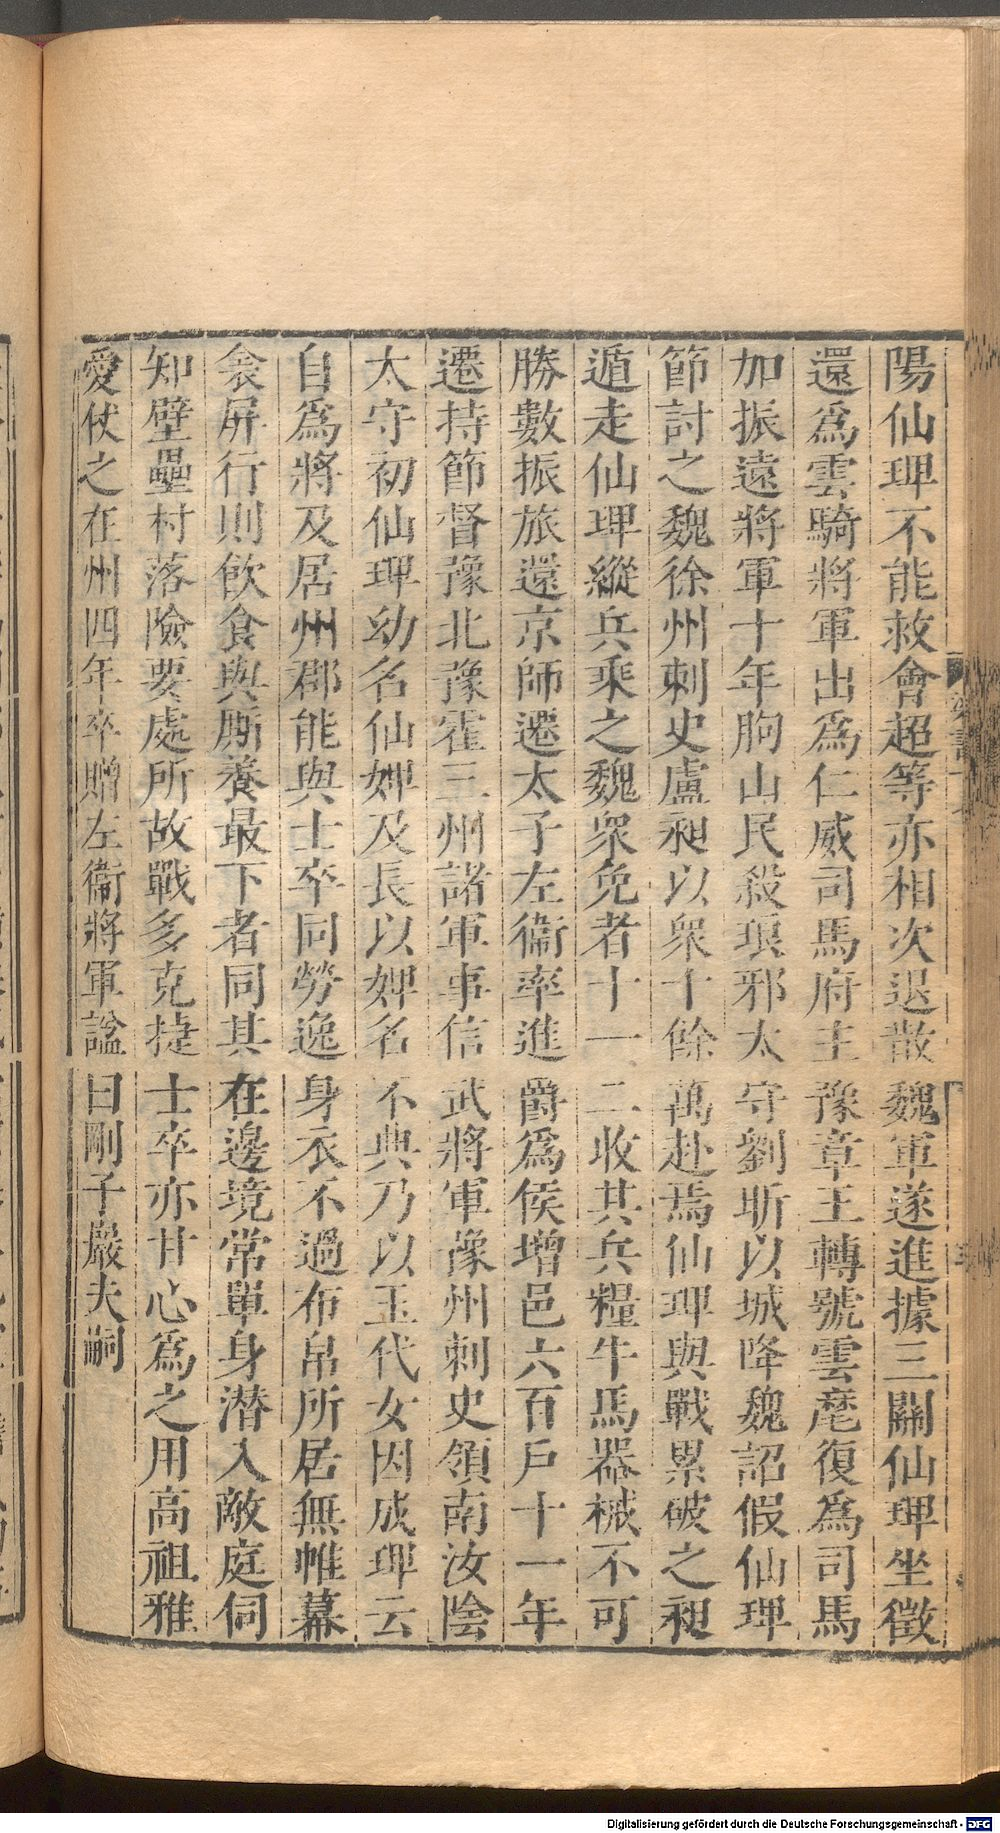 陽仙琕不能救會超等亦相次退散魏軍遂進據三關仙琕坐徵
還爲雲騎將軍出爲仁威司馬府主豫章王轉號雲麾復爲司馬
加振遠將軍十年朐山民殺琅邪太守劉昕以城降魏詔假仙琕
節討之魏徐州刺史盧昶以衆十餘萬赴焉仙琕與戰累破之昶
遁走仙琕縱兵乘之魏衆免者十一二收其兵糧牛馬器械不可
勝數振旅還京師遷太子左衞率進爵爲侯增邑六百戶十一年
遷持節督豫北豫霍三州諸軍事信武將軍豫州刺史領南汝陰
太守初仙琕幼名仙婢及長以婢名不典乃以玉代女因成琕云
自爲將及居州郡能與士卒同勞逸身衣不過布帛所居無帷幕
衾屏行則飲食與厮養最下者同其在邊境常單身潜入敵庭伺
知壁壘村落險要處所故戰多克捷士卒亦甘心爲之用高祖雅
愛仗之在州四年卒贈左衞將軍諡曰剛子巖夫嗣
Digitalisierung gefördert durch die Deutsche Forschungsgemeinschaft - DFG